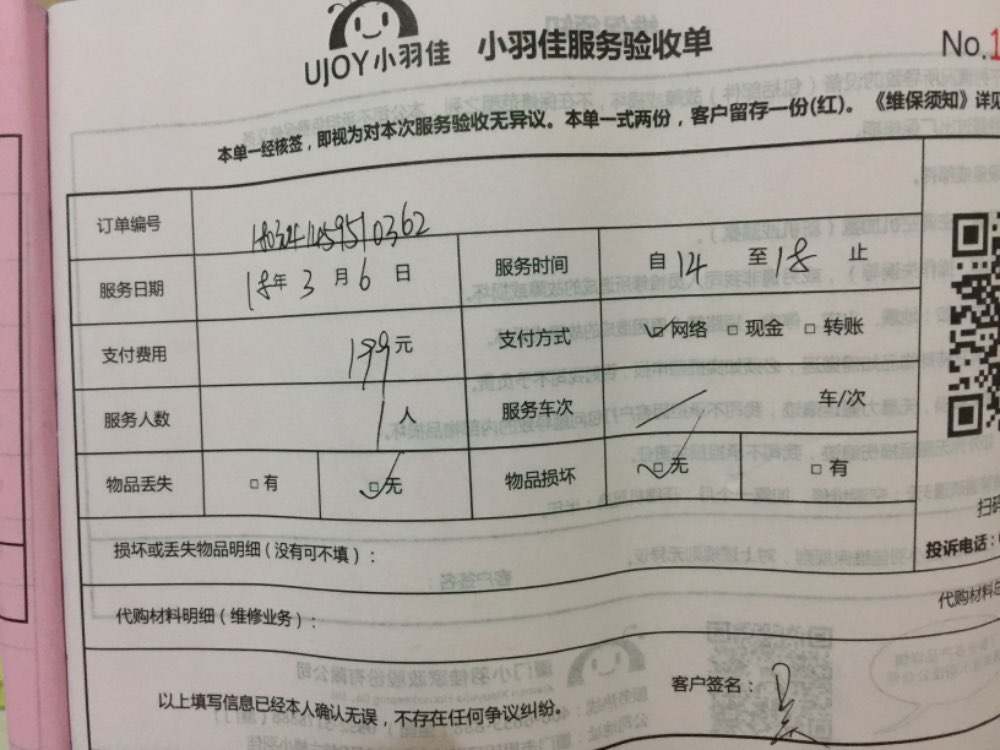 UJOY小羽佳 小羽佳服务验收单 No.1
本单一经核签，即视为对本次服务验收无异议。本单一式两份，客户留存一份(红)。《维保须知》详见
订单编号
服务日期 18年3月6日 服务时间 自14至18止
支付费用 199元 支付方式 网络 现金 转账
服务人数 1人 服务车次 车/次
物品丢失 有 无 物品损坏 无 有
扫码
损坏或丢失物品明细（没有可不填）：
投诉电话：
代购材料明细（维修业务）：
代购材料总
客户签名：
以上填写信息已经本人确认无误，不存在任何争议纠纷。